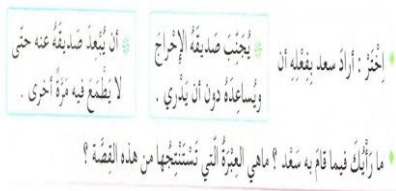 اِخْتَرْ : أرادَ سعد بِفِعْلِهِ أن
يُجَنِّبَ صَديقَهُ الإحْراجَ
ويُساعِدَهُ دون أن يَدْرِي .
أن يُبْعِدَ صَديقَهُ عنه حتّى
لا يَطْمَعَ فيه مَرَّةً أخرى .
ما رَأْيُكَ فيما قامَ به سَعْد ؟ ماهي العِبْرَةُ الَّتي تَسْتَنْتِجُها من هذه القِصَّة ؟